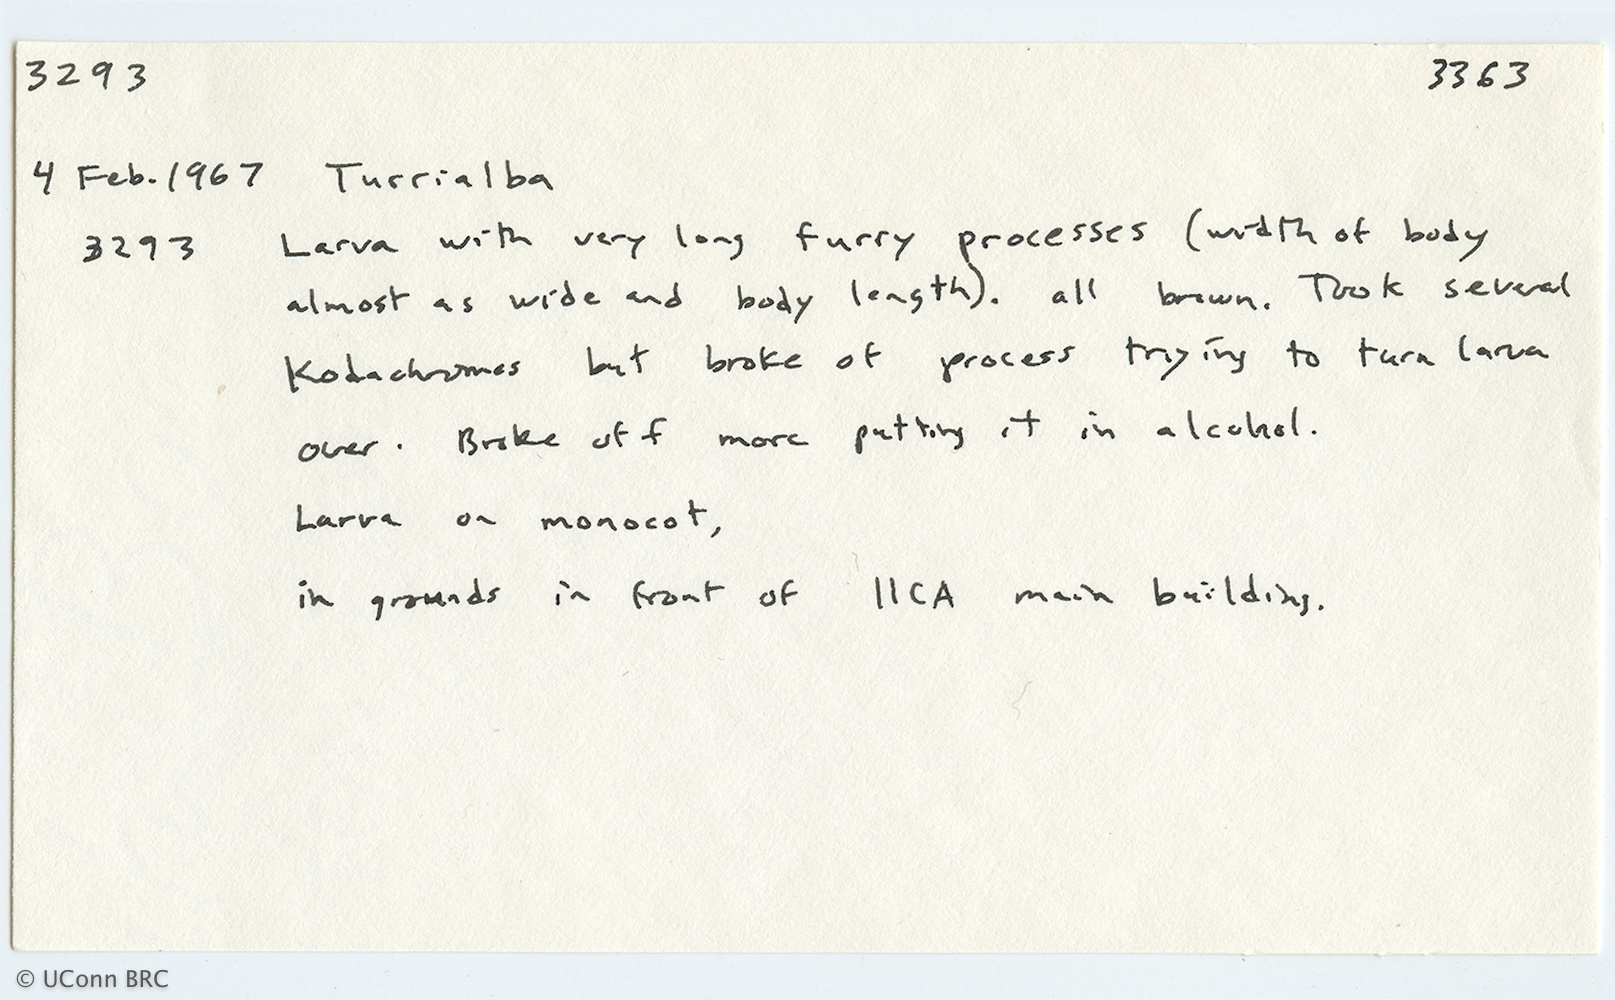 3293 3363
4 Feb. 1967 Turrialba
3293 Larva with very long furry processes (width of body
almost as wide and body length). all brown. Took several
Kodachromes but broke of process trying to turn larva
over. Broke off more putting it in alcohol.
Larva on monocot,
in grounds in front of IICA main building.
© UConn BRC